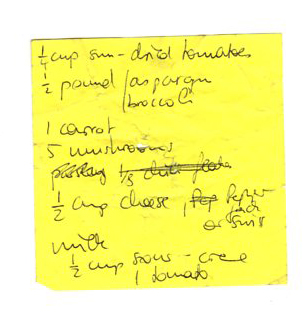 1/4 cup sun-dried tomatoes
1/2 pound /asparagus
/broccoli
1 carrot
5 mushrooms
1/3
1/2 cup cheese, pepper
jack
or swiss
milk
1/2 cup sour-cre
1 tomato